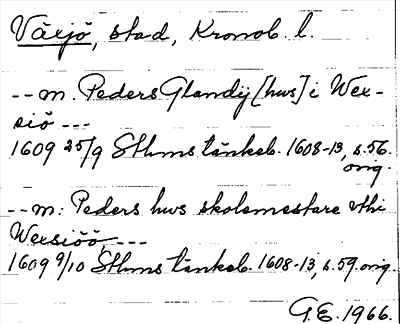 Växjö, stad, Kronob. l.
-- m. Peders Glandij [hws] i Wex-
siö ---
1609 25/9 Sthms tänkeb. 1608-13, s. 56.
orig.
-- m: Peders hws skolemestare vthi
Wexsiöö ---
1609 9/10 Sthms tänkeb. 1608-13, s. 59. orig.
G.E. 1966.